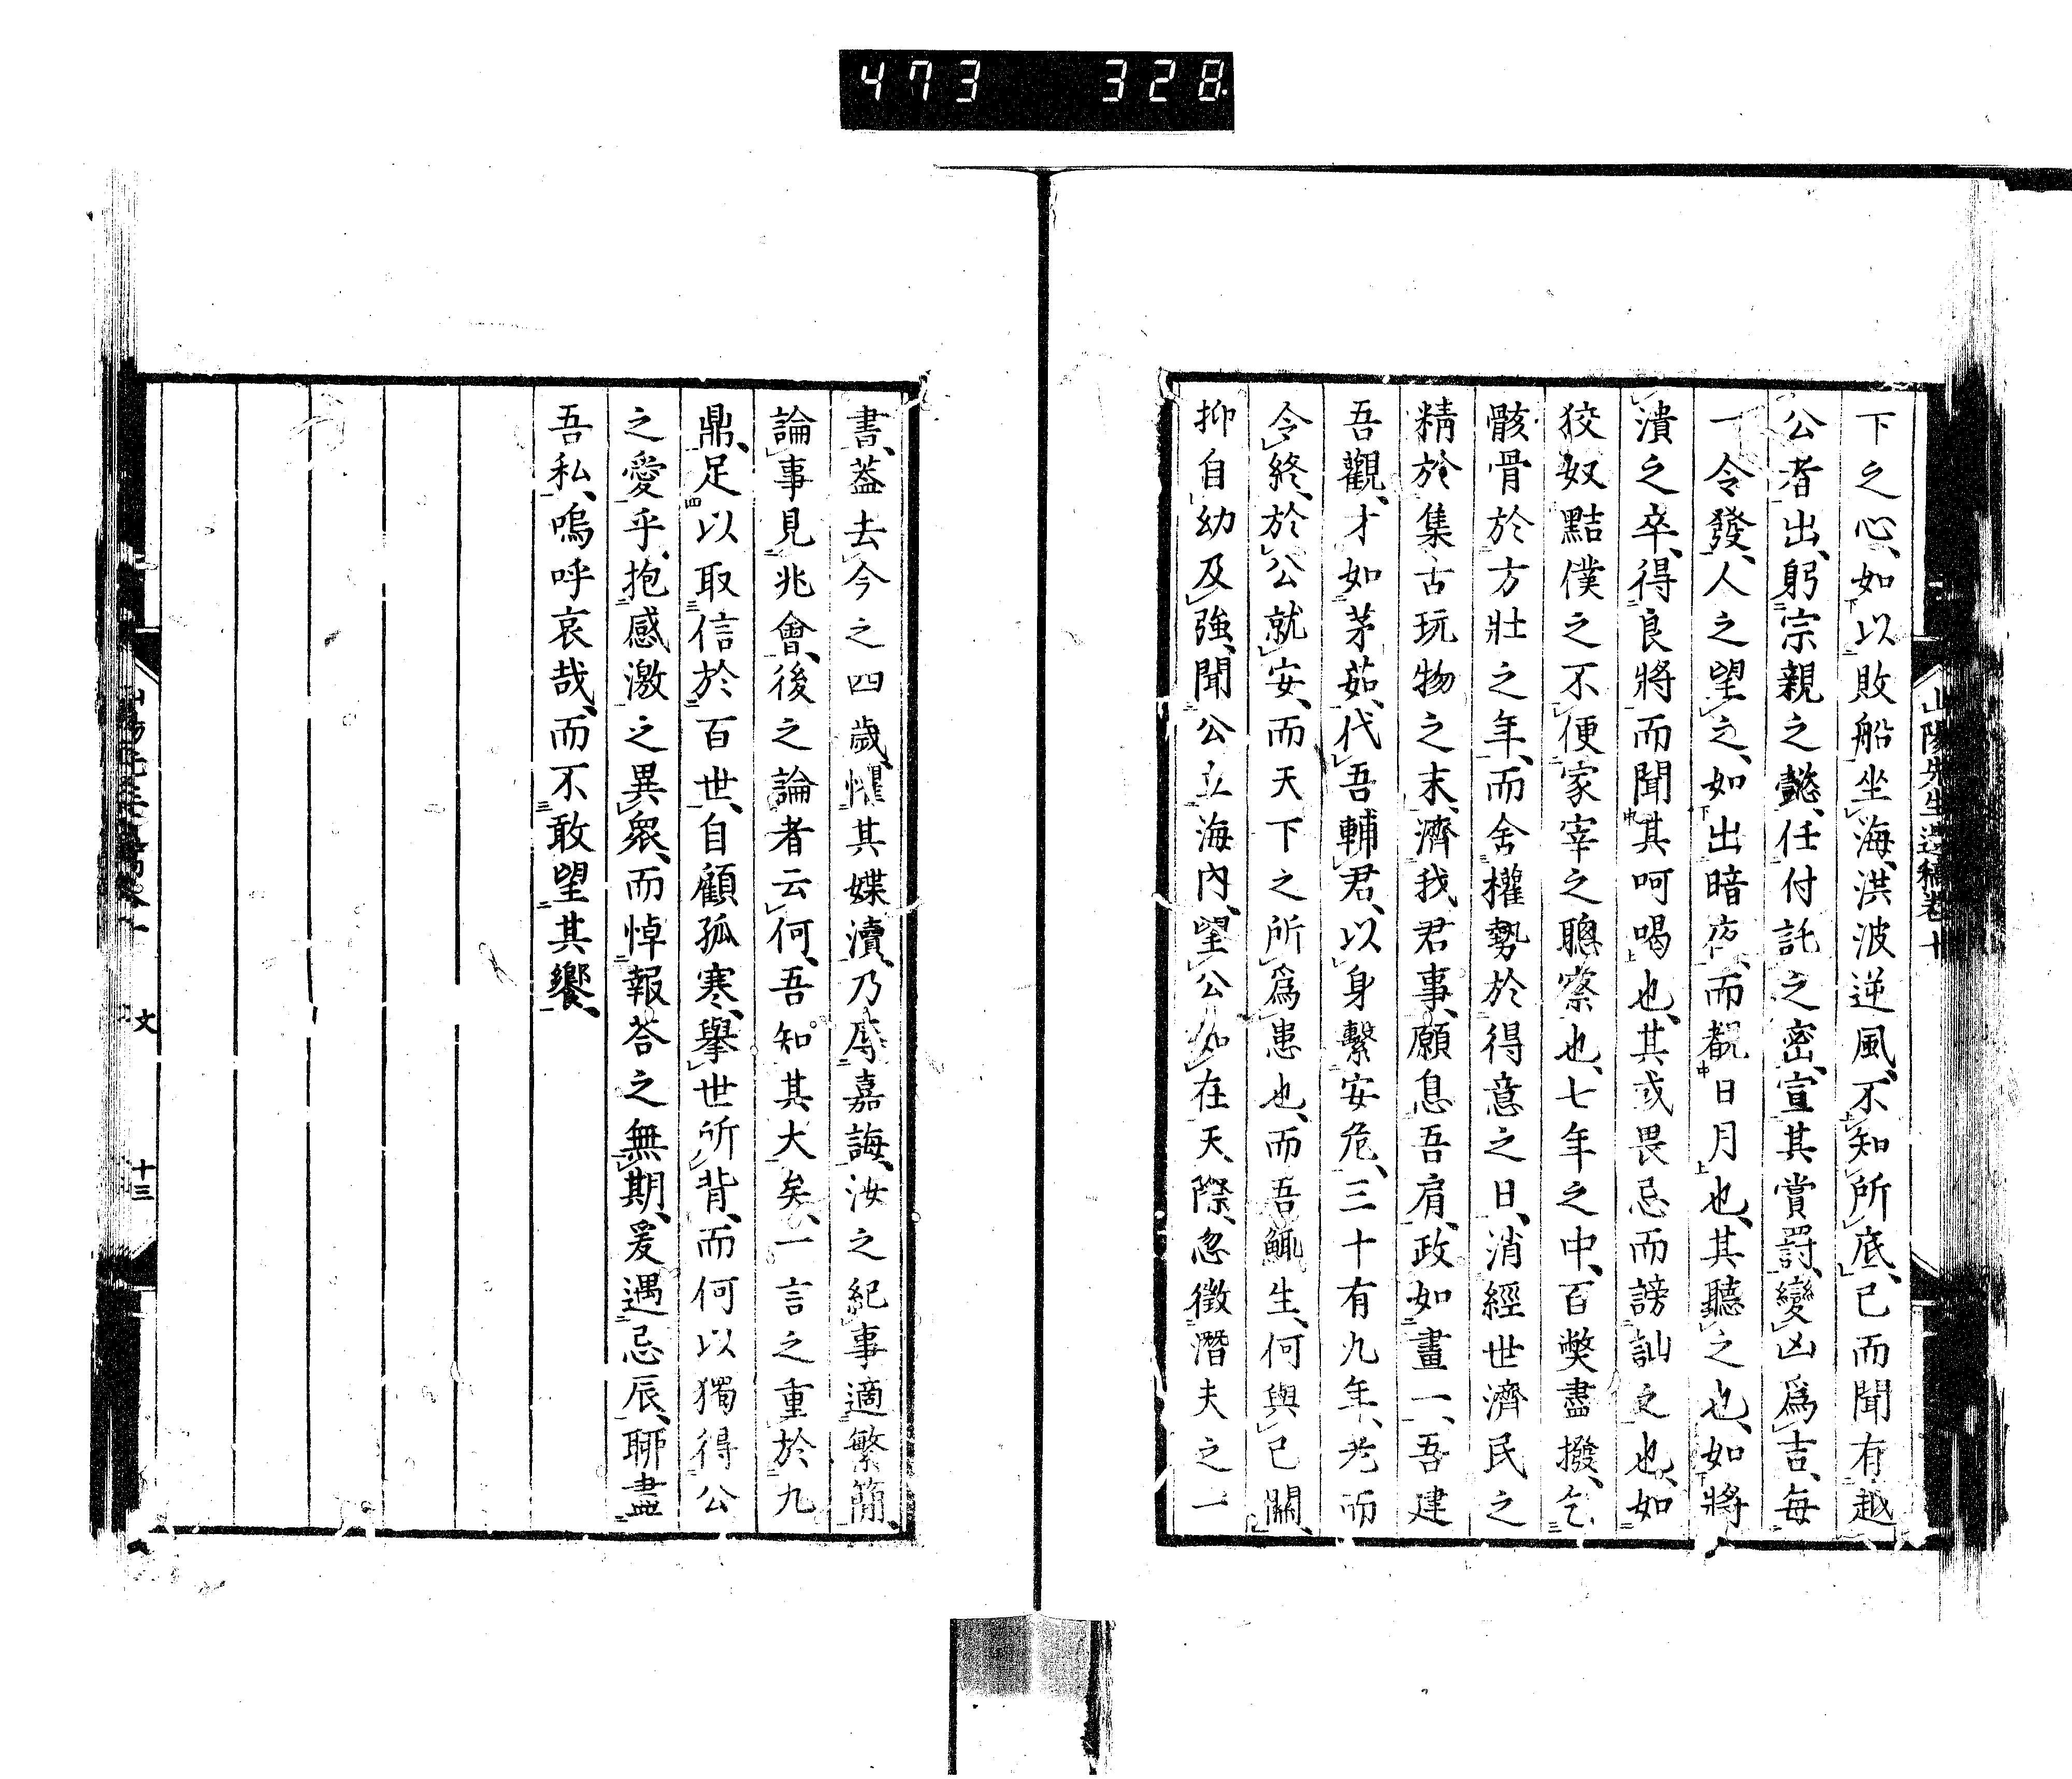 473 328
山陽先生遺稿卷十
下之心、如以敗船坐海、洪波逆風、不知所底、已而聞有越
公者出、躬宗親之懿、任付託之密、宣其賞罰、變凶爲吉、每
一令發、人之望之、如出暗夜、而覩日月也、其聽之也、如將
潰之卒、得良將而聞其呵喝也、其或畏忌而謗訕之也、如
狡奴黠僕之不便家宰之聰察也、七年之中、百獘盡撥、乞
骸骨於方壯之年、而舍權勢於得意之日、消經世濟民之
精於集古玩物之末、濟我君事、願息吾肩、政如畫一、吾建
吾觀、才如茅茹、代吾輔君、以身繫安危、三十有九年、考而
令終、於公就安、而天下之所爲患也、而吾鯫生、何與已關、
抑自幼及強、聞公立海内、望公如在天際、忽徵潛夫之一
書、蓋去今之四歲、懼其媟瀆、乃辱嘉誨、汝之紀事適繁簡、
論事見兆會、後之論者云何、吾知其大矣、一言之重於九
鼎、足以取信於百世、自顧孤寒、擧世所背、而何以獨得公
之愛乎、抱感激之異衆、而悼報荅之無期、爰遇忌辰、聊盡
吾私、嗚呼哀哉、而不敢望其饗、
文
十三